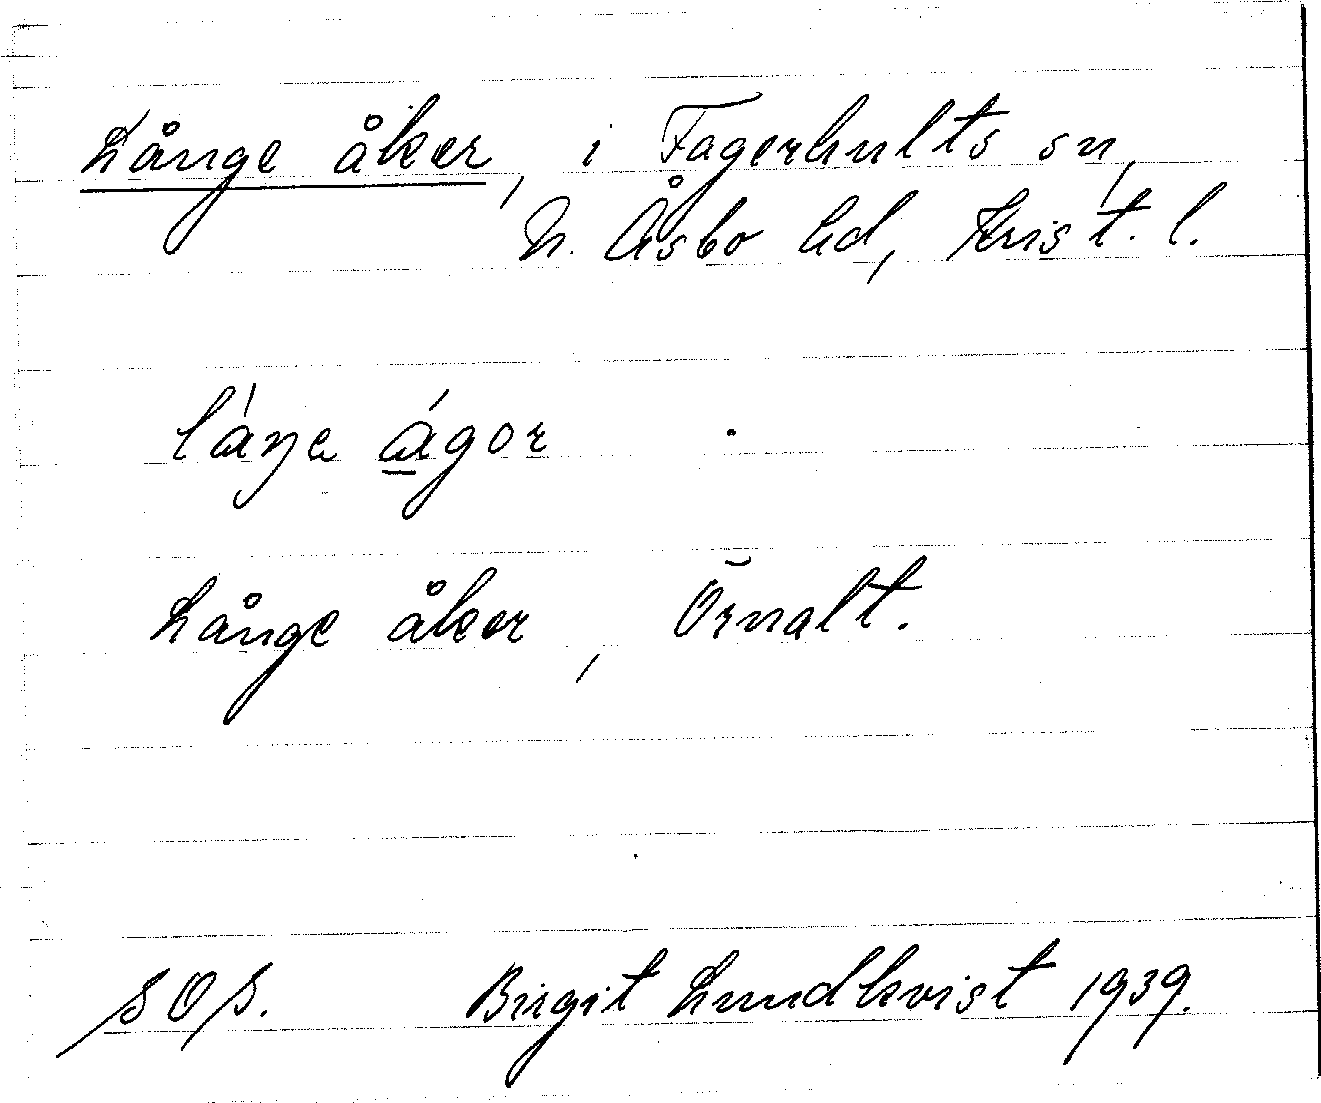 Långe åker, i Fagerhults sn,
N. Åsbo hd, Krist. l.
láŋa á̲gor
Långe åker, Örnalt.
SOS. Birgit Lundkvist 1939.